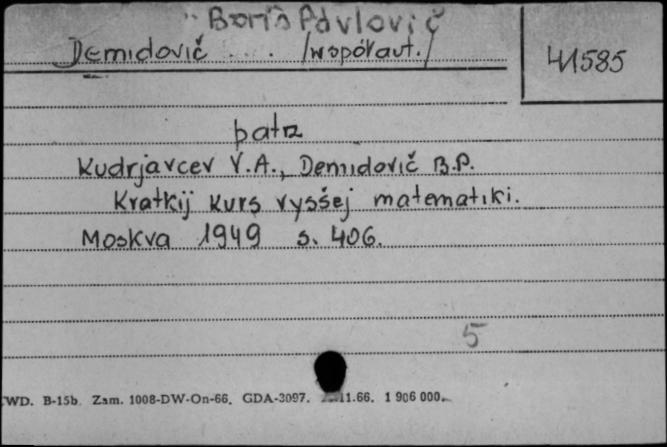 Boris Pavlovič
Demidovič .... /współaut./
41585
patrz
Kudrjavcev V.A., Demidovič B.P.
Kratkij kurs vysšej matematiki.
Moskva 1949 s. 406.
5
WD. B-15b. Zam. 1008-DW-On-66. GDA-3097. 11.66. 1 906 000.